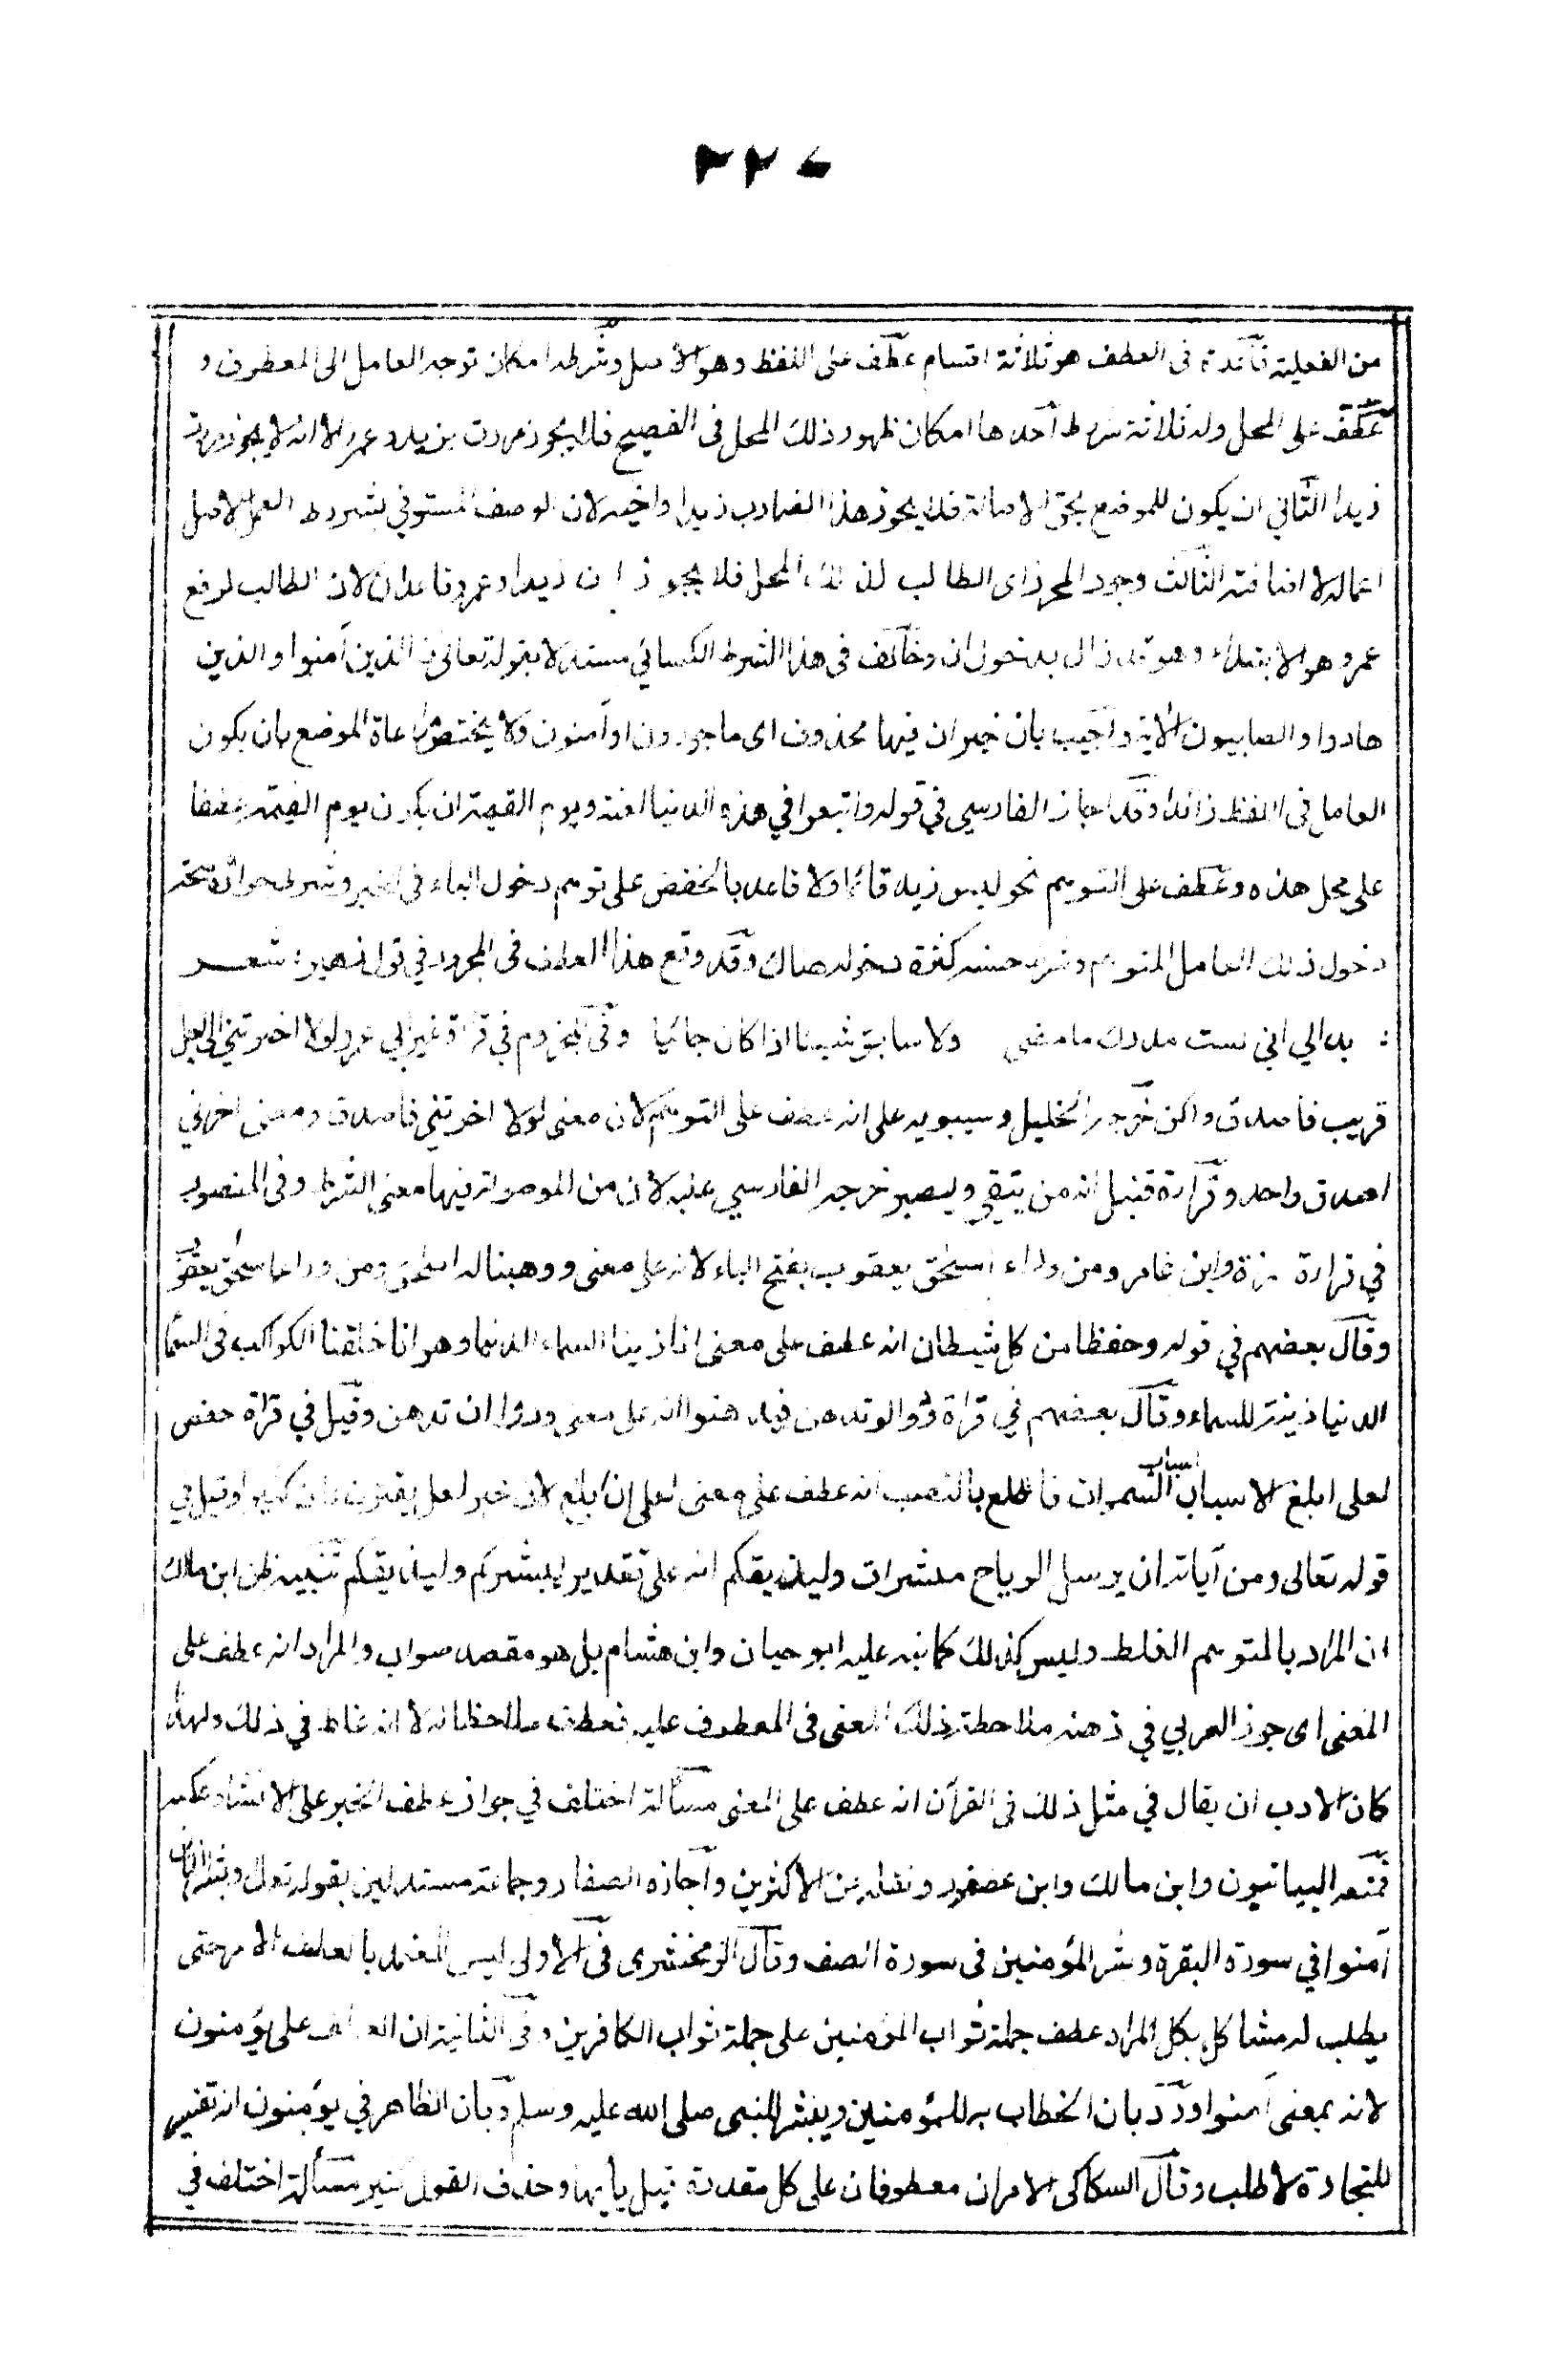 ٣٢٠
من الفعلية فائدة فى العطف هو ثلاثة اقسام عطف على اللفظ وهو الاصل وشرطه امكان توجه العامل الى المعطوف و
عطف على المحل وله ثلاثة شروط احدها امكان ظهور ذلك المحل فى الفصيح فلا يجوز مررت بزيد وعمرا لانه لا يجوز مررت
زيدا الثاني ان يكون للموضع بحق الاصالة فلا يجوز هذا الضارب زيدا واخيه لان الوصف المستوفي بشروط العمل الاصل
اعماله لا اضافته الثالث وجود المحرز اى الطالب لذلك المحل فلا يجوز ان زيدا وعمرو قاعدان لان الطالب لرفع
عمرو هو الابتداء وهو قد زال بدخول ان وخالف فى هذا الشرط الكسائي مستدلا بقوله تعالى ان الذين آمنوا والذين
هادوا والصابيون الاية واجيب بان خبر ان فيها محذوف اى ماجورون او آمنون ولا يختص مراعاة الموضع بان يكون
العامل فى اللفظ زائدا وقد اجاز الفارسي في قوله واتبعوا في هذه الدنيا لعنة ويوم القيمة ان يكون يوم القيمة عطفا
على محل هذه وعطف على التوهم نحو ليس زيد قائما ولا قاعد بالخفض على توهم دخول الباء فى الخبر وشرط جوازه صحة
دخول ذلك العامل المتوهم وشرط حسنه كثرة دخوله هناك وقد وقع هذا العطف فى المجرور في قول زهير؛ شعر
؛ بدا لي اني لست مدرك ما مضى ولا سابق شيئا اذا كان جائيا وفى المجزوم في قراة غير ابي عمرو لولا اخرتني الى اجل
قريب فاصدق واكن خرجه الخليل وسيبويه على انه عطف على التوهم لان معنى لولا اخرتني فاصدق ومعنى اخرني
اصدق واحد وقراءة قنبل انه من يتقي ويصبر خرجه الفارسي عليه لان من الموصولة فيها معنى الشرط وفى المنصوب
في قراءة حمزة وابن عامر ومن وراء اسحق يعقوب بفتح الباء لانه على معنى ووهبنا له اسحق ومن وراء اسحق يعقوب
وقال بعضهم في قوله وحفظا من كل شيطان انه عطف على معنى انا زينا السماء الدنيا وهو انا خلقنا الكواكب فى السما
الدنيا زينة للسماء وقال بعضهم في قراة ودوا لو تدهن فيدهنوا انه على معنى ودوا ان تدهن وقيل في قراة حفص
لعلى ابلغ الاسباب اسباب السموات فاطلع بالنصب انه عطف على معنى لعلى ان ابلغ لان خبر لعل يقترن بان كثيرا وقيل في
قوله تعالى ومن آياته ان يرسل الرياح مبشرات وليذيقكم انه على تقدير ليبشركم وليذيقكم تنبيه ظن ابن مالك
ان المراد بالمتوهم الغلط وليس كذلك كما نبه عليه ابو حيان وابن هشام بل هو مقصد صواب والمراد انه عطف على
المعنى اى جوز العربي في ذهنه ملاحظة ذلك المعنى فى المعطوف عليه فعطف ملاحظا له لا انه غلط في ذلك ولهذا
كان الادب ان يقال في مثل ذلك فى القرآن انه عطف على المعنى مسألة اختلف في جواز عطف الخبر على الانشاء وعكسه
فمنعه البيانيون وابن مالك وابن عصفور ونقله عن الاكثرين واجازه الصفار وجماعة مستدلين بقوله تعالى وبشر الذين
آمنوا في سورة البقرة وبشر المؤمنين فى سورة الصف وقال الزمخشرى فى الاولى ليس المعتمد بالعطف الامر حتى
يطلب له مشاكل بل المراد عطف جملة ثواب المؤمنين على جملة ثواب الكافرين وفى الثانية ان العطف على يؤمنون
لانه بمعنى آمنوا ورد بان الخطاب به للمؤمنين وببشر للنبى صلى الله عليه وسلم وبان الظاهر في يؤمنون انه تفسير
للتجارة لا طلب وقال السكاكى الامران معطوفان على كل مقدرة قبل يأيها وحذف القول كثير مسألة اختلف في